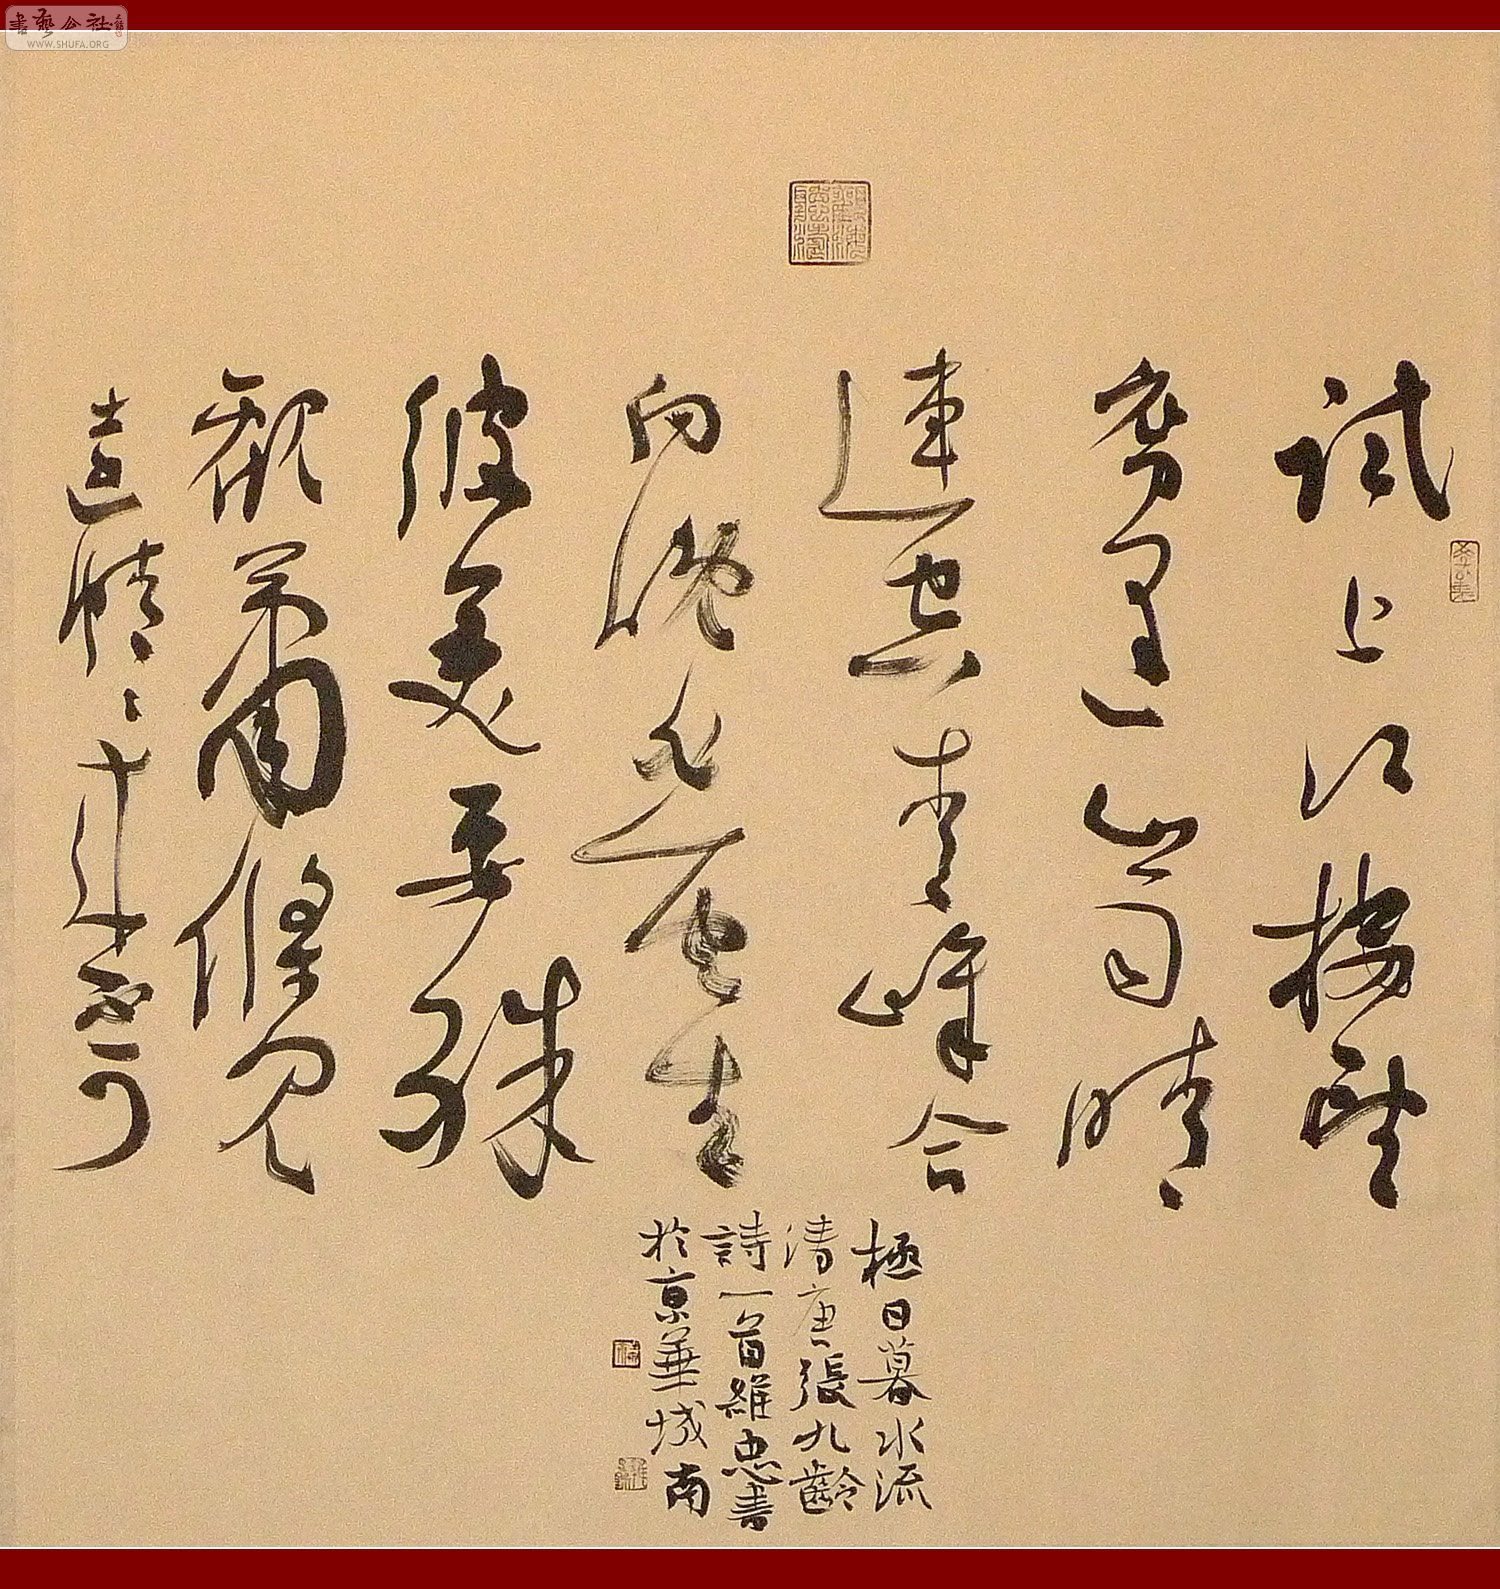 書藝公社
WWW.SHUFA.ORG
試上江樓望
初逢山雨晴
連空青嶂合
向晚白雲生
彼美要殊
觀蕭條見
遠情〻來不可
極日暮水流
清唐張九齡
詩一首維忠書
於京華城南